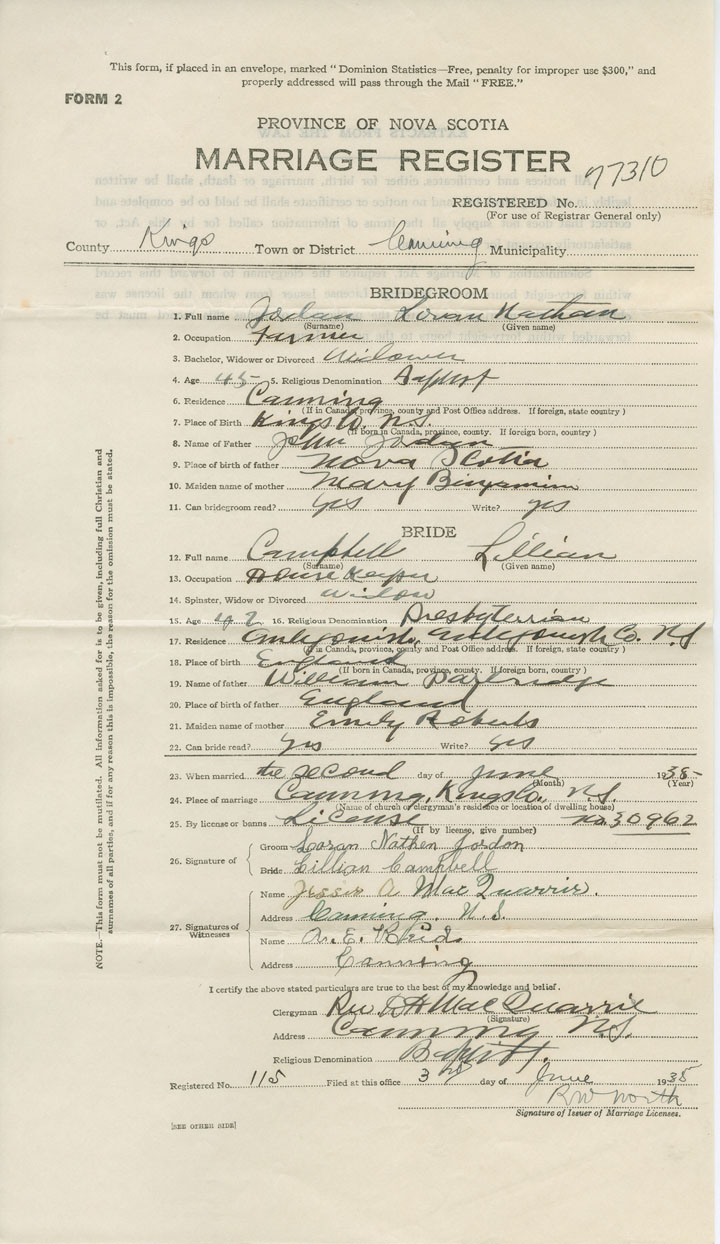 This form, if placed in an envelope, marked "Dominion Statistics—Free, penalty for improper use $300," and
properly addressed will pass through the Mail "FREE."
FORM 2
PROVINCE OF NOVA SCOTIA
MARRIAGE REGISTER
77310
REGISTERED No.
(For use of Registrar General only)
County Kings Town or District Canning Municipality
BRIDEGROOM
1. Full name Jordan Loran Nathan
(Surname) (Given name)
2. Occupation Farmer
3. Bachelor, Widower or Divorced Widower
4. Age 45 5. Religious Denomination Baptist
6. Residence Canning
(If in Canada, province, county and Post Office address. If foreign, state country)
7. Place of Birth Kings Co. N.S.
(If born in Canada, province, county. If foreign born, country)
8. Name of Father John Jordan
9. Place of birth of father Nova Scotia
10. Maiden name of mother Mary Binyamin
11. Can bridegroom read? yes Write? yes
BRIDE
12. Full name Campbell Lillian
(Surname) (Given name)
13. Occupation House Keeper
14. Spinster, Widow or Divorced widow
15. Age 42 16. Religious Denomination Presbyterian
17. Residence Antigonish, Antigonish Co. N.S
(If in Canada, province, county and Post Office address. If foreign, state country)
18. Place of birth England
(If born in Canada, province, county. If foreign born, country)
19. Name of father William Partridge
20. Place of birth of father England
21. Maiden name of mother Emily Roberts
22. Can bride read? yes Write? yes
23. When married the second day of June 1938
(Month) (Year)
24. Place of marriage Canning, Kings Co. N.S.
(Name of church or clergyman's residence or location of dwelling house)
25. By license or banns License no. 30962
(If by license, give number)
26. Signature of
Groom Loran Nathen Jordon
Bride Lillian Campbell
27. Signatures of Witnesses
Name Jessie A MacQuarrie.
Address Canning. N.S.
Name E. Reid.
Address Canning
I certify the above stated particulars are true to the best of my knowledge and belief.
Clergyman Rev MacQuarrie
(Signature)
Address Canning N.S.
Religious Denomination Baptist.
Registered No. 115 Filed at this office 3rd day of June 1938
R W North
Signature of Issuer of Marriage Licenses.
[SEE OTHER SIDE]
NOTE.—This form must not be mutilated. All information asked for is to be given, including full Christian and
surnames of all parties, and if for any reason this is impossible, the reason for the omission must be stated.